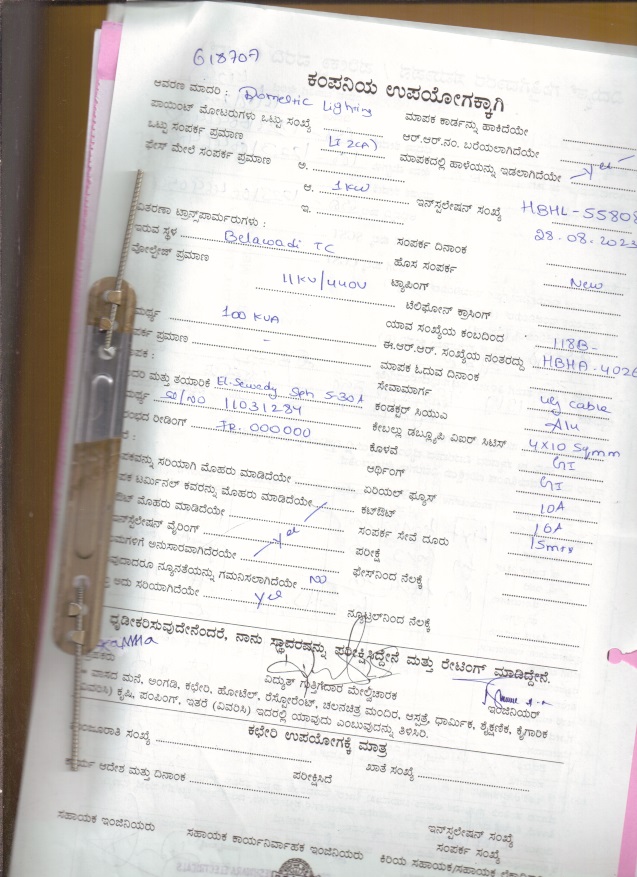 618707
ಕಂಪನಿಯ ಉಪಯೋಗಕ್ಕಾಗಿ
ಆವರಣ ಮಾದರಿ : Domestic Lighting ಮಾಪಕ ಕಾರ್ಡನ್ನು ಹಾಕಿದೆಯೇ
ಪಾಯಿಂಟ್ ಮೋಟರುಗಳು ಒಟ್ಟು ಸಂಖ್ಯೆ ಆರ್.ಆರ್.ನಂ. ಬರೆಯಲಾಗಿದೆಯೇ
ಒಟ್ಟು ಸಂಪರ್ಕ ಪ್ರಮಾಣ LT 2(A) ಮಾಪಕದಲ್ಲಿ ಹಾಳೆಯನ್ನು ಇಡಲಾಗಿದೆಯೇ yes
ಫೇಸ್ ಮೇಲೆ ಸಂಪರ್ಕ ಪ್ರಮಾಣ ಅ.
ಆ. 1KW ಇನ್‌ಸ್ಟಲೇಷನ್ ಸಂಖ್ಯೆ HBHL-55808
ಇ.
ವಿತರಣಾ ಟ್ರಾನ್ಸ್‌ಪಾರ್ಮರುಗಳು : ಸಂಪರ್ಕ ದಿನಾಂಕ 28.08.2023
ಇರುವ ಸ್ಥಳ Belawadi TC ಹೊಸ ಸಂಪರ್ಕ New
ವೋಲ್ಟೇಜ್ ಪ್ರಮಾಣ 11KV/440V ಟ್ಯಾಪಿಂಗ್
ಟೆಲಿಫೋನ್ ಕ್ರಾಸಿಂಗ್
100 KVA ಯಾವ ಸಂಖ್ಯೆಯ ಕಂಬದಿಂದ 118B-
ಪ್ರಮಾಣ - ಈ.ಆರ್.ಆರ್. ಸಂಖ್ಯೆಯ ನಂತರದ್ದು HBHA-4026
ಮಾಪಕ ಓದುವ ದಿನಾಂಕ
ಮತ್ತು ತಯಾರಿಕೆ El-Sewedy Sph 5-30A ಸೇವಾಮಾರ್ಗ ug cable
Sl/NO 11031284 ಕಂಡಕ್ಟರ್ ಸಿಯುಎ Alu
ರೀಡಿಂಗ್ IR. 000000 ಕೇಬಲ್ಲು ಡಬ್ಲ್ಯೂಪಿ ವಿಐರ್ ಸಿಟಿಸ್ 4x10 Sqmm
ಕೊಳವೆ GI
ಸರಿಯಾಗಿ ಮೊಹರು ಮಾಡಿದೆಯೇ ಆರ್ಥಿಂಗ್ GI
ಟರ್ಮಿನಲ್ ಕವರನ್ನು ಮೊಹರು ಮಾಡಿದೆಯೇ ಏರಿಯಲ್ ಫ್ಯೂಸ್
ಮೊಹರು ಮಾಡಿದೆಯೇ ಕಟ್‌ಔಟ್ 10A
ವೈರಿಂಗ್ yes ಸಂಪರ್ಕ ಸೇವೆ ದೂರು 16A
ಅನುಸಾರವಾಗಿದೆಯೇ ಪರೀಕ್ಷೆ
ನ್ಯೂನತೆಯನ್ನು ಗಮನಿಸಲಾಗಿದೆಯೇ NO ಫೇಸ್‌ನಿಂದ ನೆಲಕ್ಕೆ
ಅದು ಸರಿಯಾಗಿದೆಯೇ yes ನ್ಯೂಟ್ರಲ್‌ನಿಂದ ನೆಲಕ್ಕೆ
ಧೃಡೀಕರಿಸುವುದೇನೆಂದರೆ, ನಾನು ಸ್ಥಾವರವನ್ನು ಪರೀಕ್ಷಿಸಿದ್ದೇನೆ ಮತ್ತು ರೇಟಿಂಗ್ ಮಾಡಿದ್ದೇನೆ.
ವಿದ್ಯುತ್ ಗುತ್ತಿಗೆದಾರ ಮೇಲ್ವಿಚಾರಕ ಇಂಜಿನಿಯರ್
ವಾಸದ ಮನೆ, ಅಂಗಡಿ, ಕಛೇರಿ, ಹೋಟೆಲ್, ರೆಸ್ಟೋರೆಂಟ್, ಚಲನಚಿತ್ರ ಮಂದಿರ, ಆಸ್ಪತ್ರೆ, ಧಾರ್ಮಿಕ, ಶೈಕ್ಷಣಿಕ, ಕೈಗಾರಿಕ
ಕೃಷಿ, ಪಂಪಿಂಗ್, ಇತರೆ (ವಿವರಿಸಿ) ಇದರಲ್ಲಿ ಯಾವುದು ಎಂಬುವುದನ್ನು ತಿಳಿಸಿರಿ.
ಕಛೇರಿ ಉಪಯೋಗಕ್ಕೆ ಮಾತ್ರ
ಸಂಖ್ಯೆ ಖಾತೆ ಸಂಖ್ಯೆ
ಆದೇಶ ಮತ್ತು ದಿನಾಂಕ ಪರೀಕ್ಷಿಸಿದೆ
ಇನ್‌ಸ್ಟಲೇಷನ್ ಸಂಖ್ಯೆ
ಸಂಪರ್ಕ ಸಂಖ್ಯೆ
ಸಹಾಯಕ ಇಂಜಿನಿಯರು ಸಹಾಯಕ ಕಾರ್ಯನಿರ್ವಾಹಕ ಇಂಜಿನಿಯರು ಕಿರಿಯ ಸಹಾಯಕ/ಸಹಾಯಕ